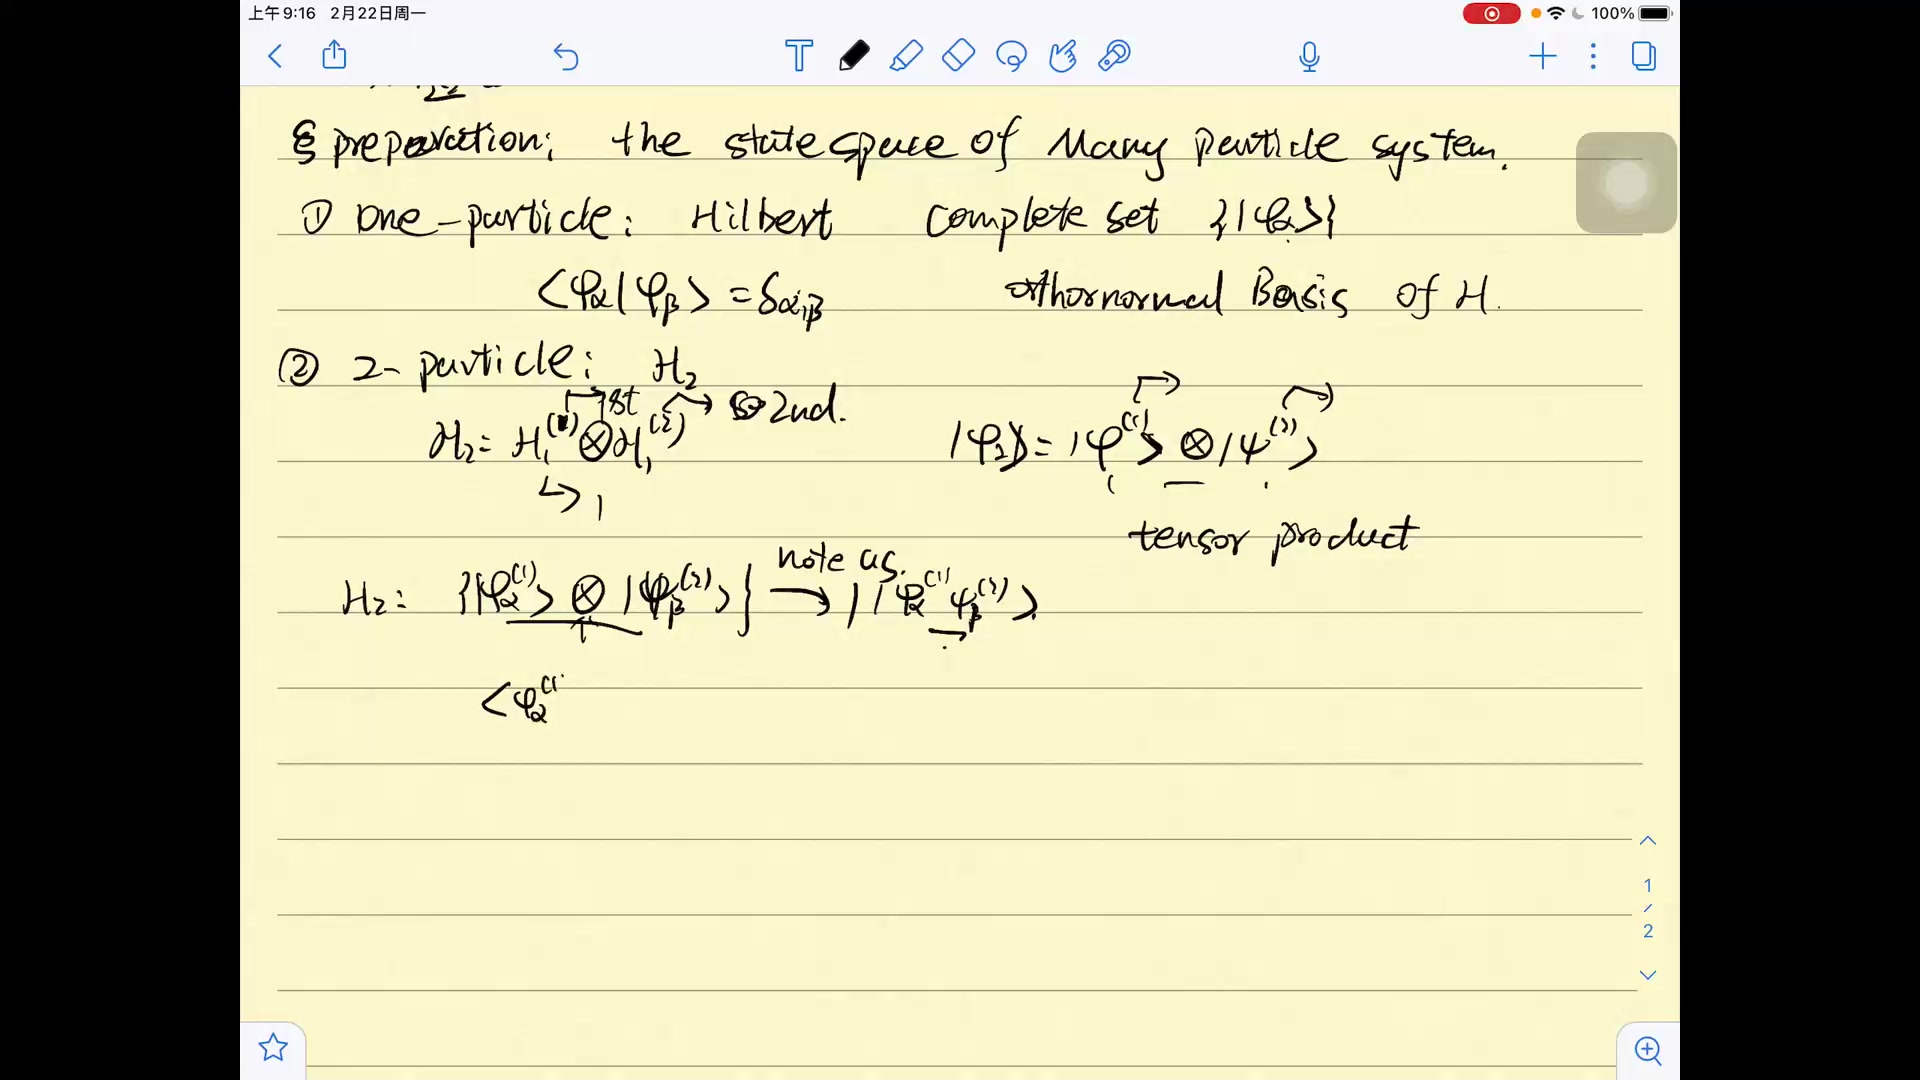 上午9:16 2月22日周一 100%
§ preparation: the state space of Many particle system.
① one-particle: Hilbert complete set {|φα>}
<φα|φβ> = δα,β orthornormal Basis of H.
② 2-particle: H₂
1st 2nd.
H₂ = H₁⁽¹⁾ ⊗ H₁⁽²⁾ |φ₂> = |φ⁽¹⁾> ⊗ |ψ⁽²⁾>
↳ 1
tensor product
note as.
H₂: {|φα⁽¹⁾> ⊗ |ψβ⁽²⁾>} → | |φα⁽¹⁾ψβ⁽²⁾>
<φα⁽¹
1
/
2